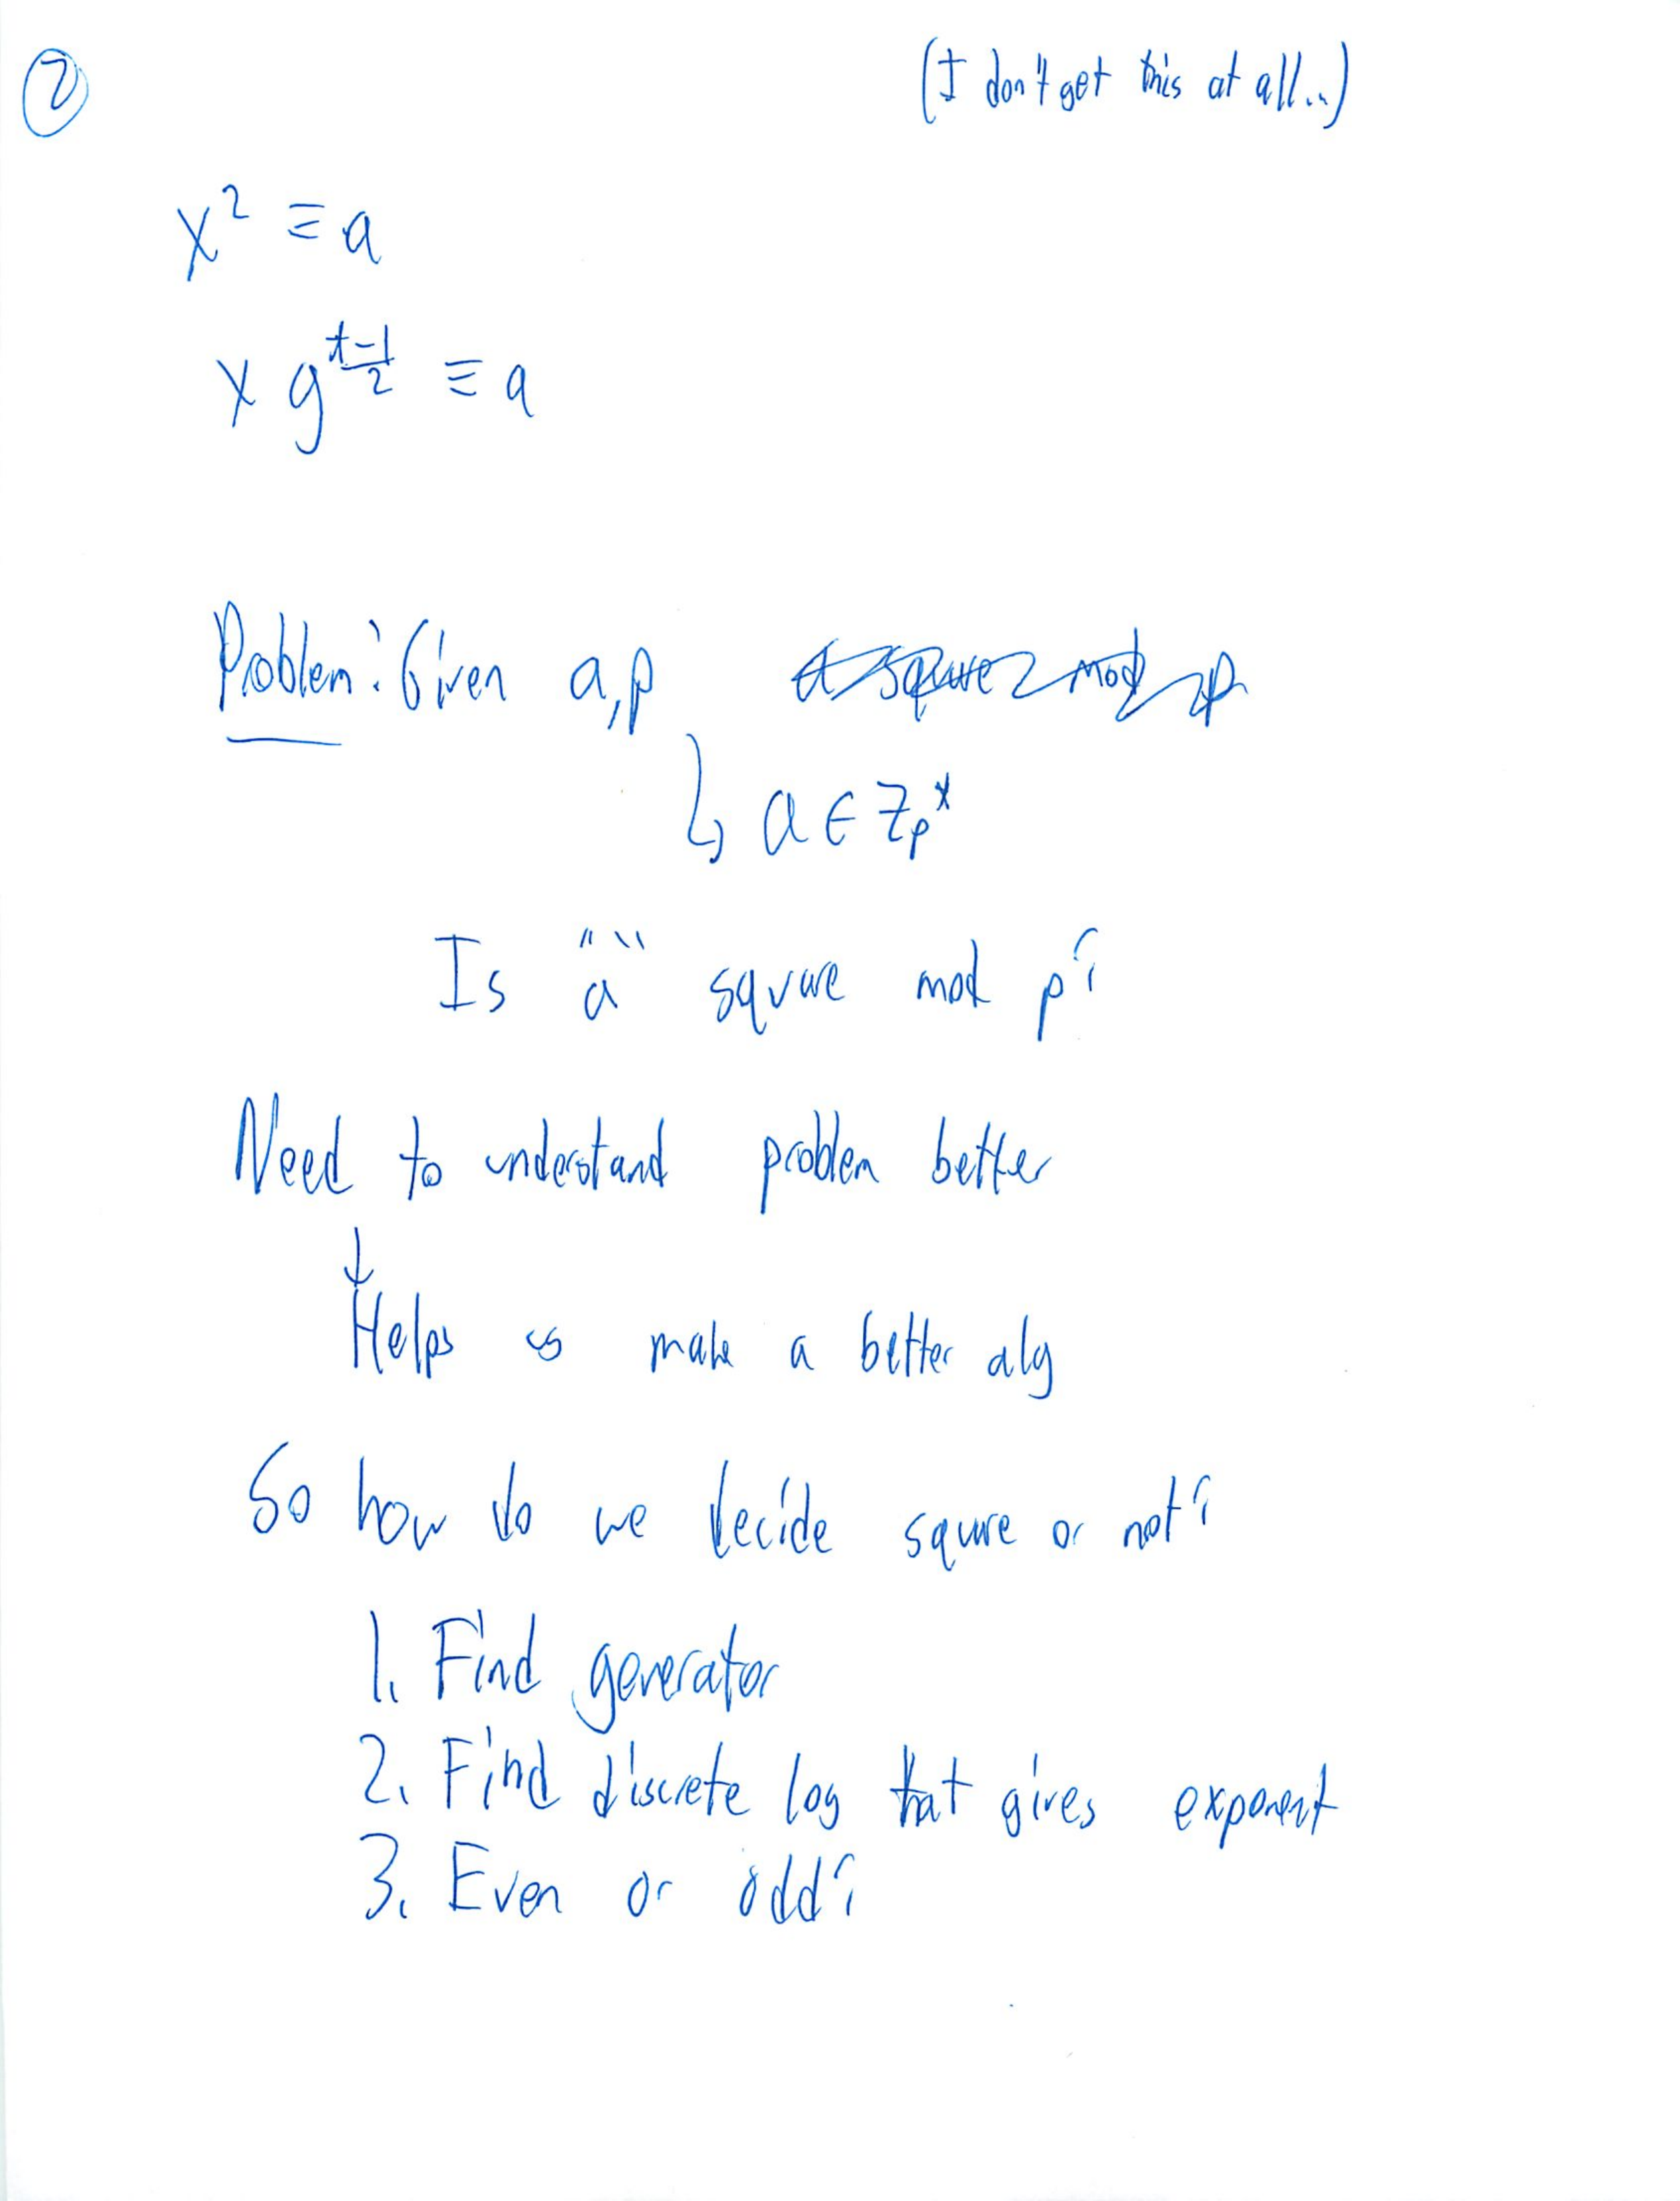 ②
(I don't get this at all...)
x² ≡ a
x g^((t-1)/2) ≡ a
Problem: Given a,p a square mod p
↳ a ∈ Zp*
Is "a" square mod p?
Need to understand problem better
↓
Helps us make a better alg
So how do we decide square or not?
1. Find generator
2. Find discrete log that gives exponent
3. Even or odd?